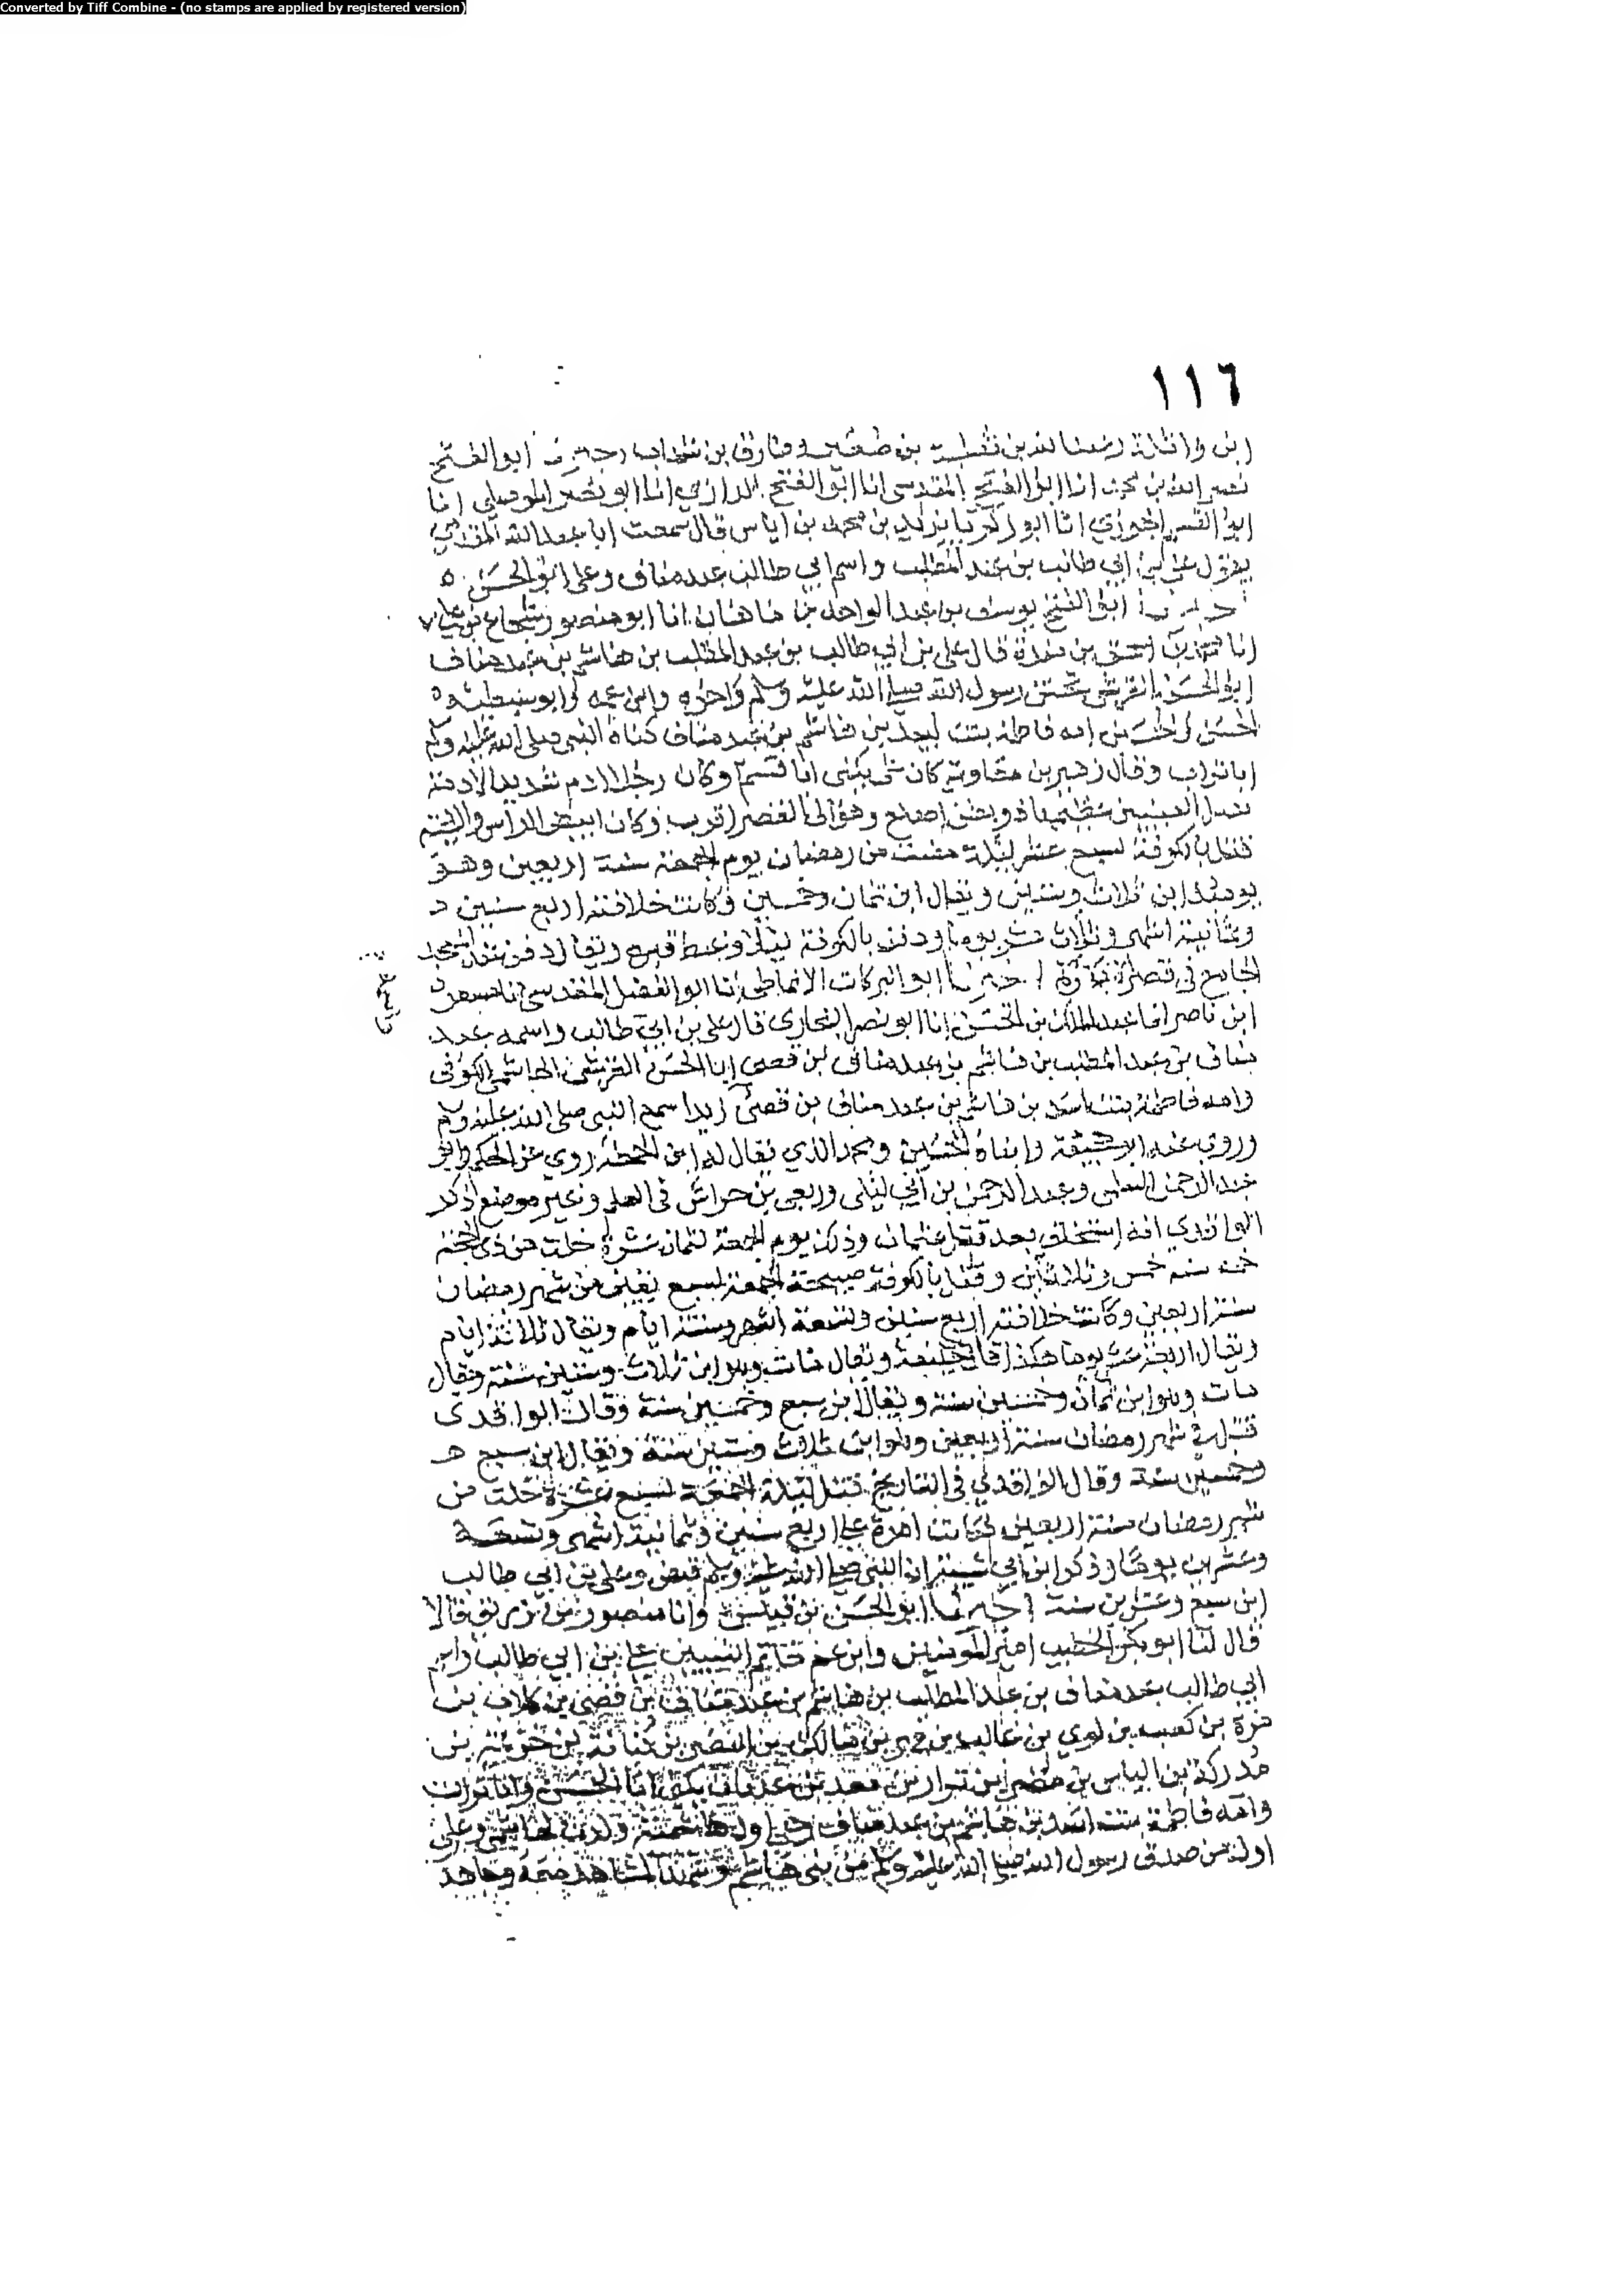 Converted by Tiff Combine - (no stamps are applied by registered version)
١١٦
ابن واثلة وعبد الله بن ثعلبة بن صعير وطارق بن شهاب اخبرنا ابو الفتح
نصر الله بن محمد انا ابو الفتح المقدسي انا ابو الفتح الرازي انا ابو نصر الموصلي انا
ابو القسم انا ابو زكريا يزيد بن محمد بن اياس قال سمعت ابا عبد الله المقدمي
يقول علي بن ابي طالب بن عبد المطلب واسم ابي طالب عبد مناف وعلي ابو الحسن ٥
اخبرنا ابو الفتح يوسف بن عبد الواحد بن ماهان انا ابو منصور شجاع بن علي
انا محمد بن اسحق بن مندة قال علي بن ابي طالب بن عبد المطلب بن هاشم بن عبد مناف
ابو الحسن القرشي ختن رسول الله صلى الله عليه وسلم واخوه وابن عمه وابو سبطيه
الحسن والحسين امه فاطمة بنت اسد بن هاشم بن عبد مناف كناه النبي صلى الله عليه وسلم
ابا تراب وقال زهير بن معاوية كان علي يكنى ابا قسم وكان رجلا ادم شديد الادمة
ثقيل العينين عظيمهما ذو بطن اصلع وهو الى القصر اقرب وكان ابيض الراس واللحية
قتل بالكوفة لسبع عشر ليلة مضت من رمضان يوم الجمعة سنة اربعين وهو
يومئذ ابن ثلاث وستين ويقال ابن ثمان وخمسين وكانت خلافته اربع سنين
وثمانية اشهر وثلاث عشر يوما ودفن بالكوفة ليلا وغبي قبره ويقال دفن عند المسجد
الجامع في قصر الامارة اخبرنا ابو البركات الانماطي انا ابو الفضل المقدسي انا مسعود
ابن ناصر انا عبد الملك بن الحسن انا ابو نصر البخاري قال علي بن ابي طالب واسمه عبد
مناف بن عبد المطلب بن هاشم بن عبد مناف بن قصي ابو الحسن القرشي الهاشمي الكوفي
وامه فاطمة بنت اسد بن هاشم بن عبد مناف بن قصي ايضا سمع النبي صلى الله عليه وسلم
وروى عنه ابو جحيفة وابناه الحسين ومحمد الذي يقال له ابن الحنفية روى عن الحكم وابو
عبد الرحمن السلمي وعبد الرحمن بن ابي ليلى وربعي بن حراش في العلم وغير موضع ذكر
الواقدي انه استخلف بعد قتل عثمان وذلك يوم الجمعة لثمان عشرة خلت من ذي الحجة
سنة خمس وثلاثين وقتل بالكوفة صبيحة الجمعة لسبع بقين من شهر رمضان
سنة اربعين وكانت خلافته اربع سنين وتسعة اشهر وستة ايام ويقال ثلاثة ايام
ويقال اربعة عشر يوما هكذا قال خليفة ويقال مات وهو ابن ثلاث وستين سنة ويقال
مات وهو ابن ثمان وخمسين سنة ويقال ابن سبع وخمسين سنة وقال الواقدي
قتل في شهر رمضان سنة اربعين وهو ابن ثلاث وستين سنة ويقال ابن سبع
وخمسين سنة وقال الواقدي في التاريخ قتل ليلة الجمعة لسبع عشرة خلت من
شهر رمضان سنة اربعين فكانت امرة علي اربع سنين وثمانية اشهر وتسعة
وعشرين يوما وذكر ابن ابي شيبة ان النبي صلى الله عليه وسلم قبض وعلي بن ابي طالب
ابن سبع وعشرين سنة اخبرنا ابو الحسن بن قبيس وانا منصور بن زريق قالا
قال لنا ابو بكر الخطيب امير المومنين وابن عم خاتم النبيين علي بن ابي طالب واسم
ابي طالب عبد مناف بن عبد المطلب بن هاشم بن عبد مناف بن قصي بن كلاب بن
مرة بن كعب بن لوي بن غالب بن فهر بن مالك بن النضر بن كنانة بن خزيمة بن
مدركة بن الياس بن مضر بن نزار بن معد بن عدنان يكنى ابا الحسن وابا تراب
وامه فاطمة بنت اسد بن هاشم بن عبد مناف وهي اول هاشمية ولدت لهاشمي وعلي
اول من صدق رسول الله صلى الله عليه وسلم من بني هاشم وشهد المشاهد معه وجاهد